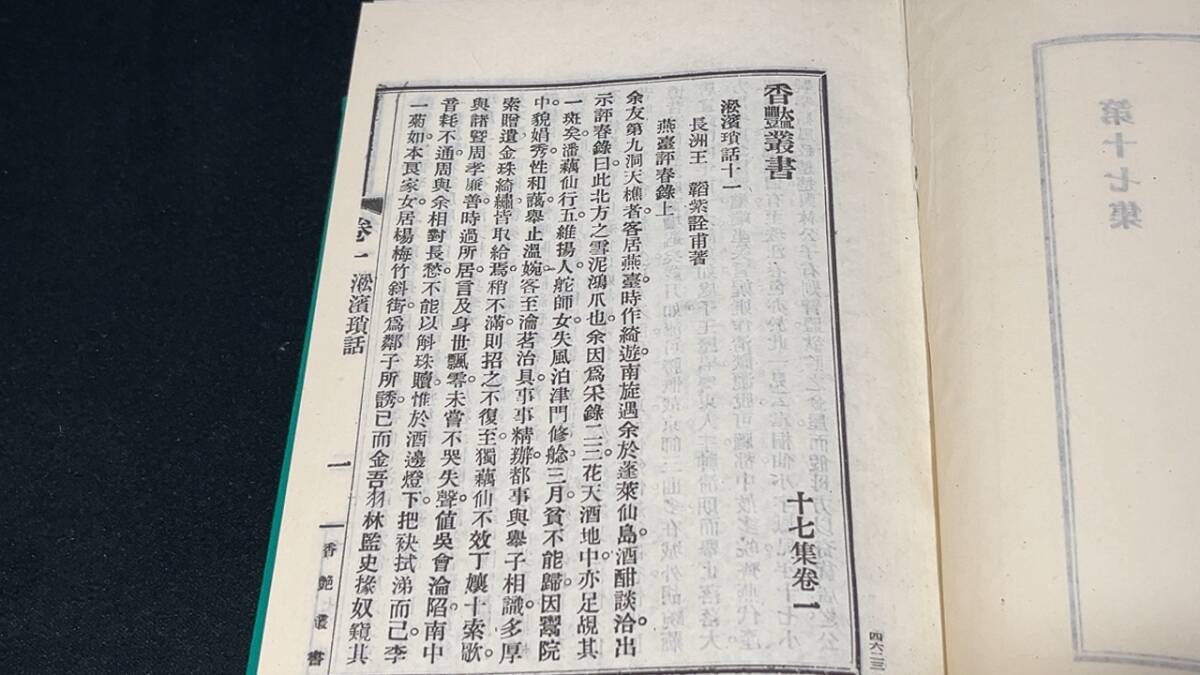 香豔叢書
十七集卷一
淞濱瑣話十一
長洲王 韜紫詮甫著
燕臺評春錄上
余友第九洞天樵者客居燕臺時作綺遊。南旋遇余於蓬萊仙島。酒酣談洽。出
示評春錄曰。此北方之雪泥鴻爪也。余因爲采錄一二。花天酒地中。亦足覘其
一斑矣。潘藕仙行五維揚人。舵師女。失風泊津門。修艌三月。貧不能歸。因鬻院
中。貌娟秀。性和藹。舉止溫婉。客至瀹茗治具。事事精辦。都事與舉子相識。多厚
索贈遺。金珠綺繡。皆取給焉。稍不滿則招之不復至。獨藕仙不效丁孃十索歌。
與諸暨周孝廉善。時過所居。言及身世飄零。未嘗不哭失聲。值吳會淪陷。南中
音耗不通。周與余相對長愁。不能以斛珠贖。惟於酒邊燈下。把袂拭涕而已。李
一菊如本良家女。居楊梅竹斜街。爲鄰子所誘。已而金吾羽林監史掾奴窺其
卷一 淞濱瑣話
一
香艷叢書
四六二三
第十七集